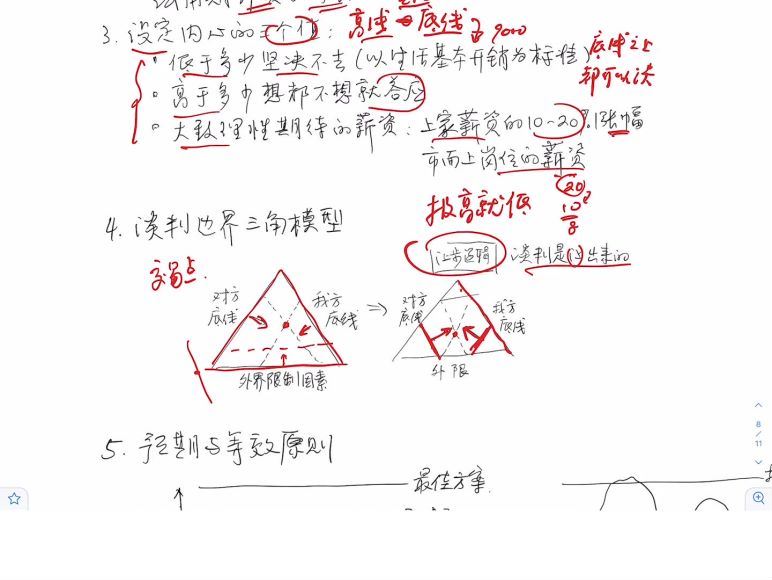 3. 设定内心的三个值： 高线 底线 9000
· 低于多少坚决不去（以生活基本开销为标准） 底线之上
都可以谈
· 高于多少想都不想就答应
· 大致理性期待的薪资：上家薪资的10-20%涨幅
市面上岗位的薪资
20
10
8
报高就低
4. 谈判边界三角模型
让步逻辑 谈判是 出来的
交易点
对方底线 我方底线 ⇒ 对方底线 我方底线
外界限制因素 外限
5. 预期与等效原则
最佳方案
8
/
11